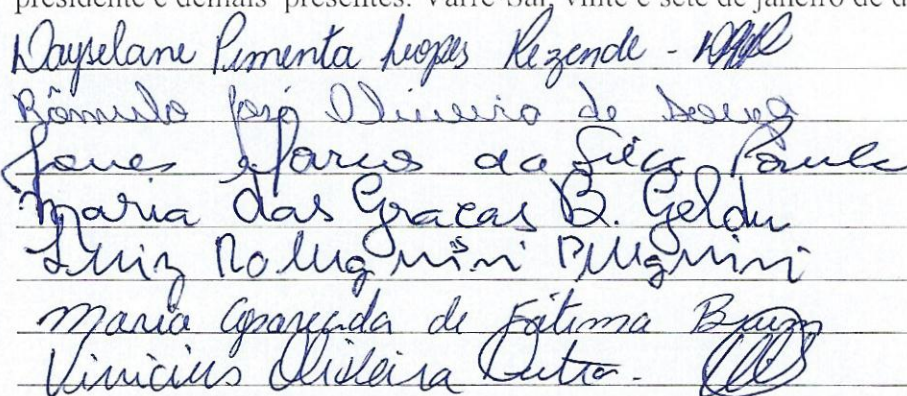 presidente e demais presentes. Varre-Sai, vinte e sete de janeiro de d
Dayselane Pimenta Lopes Rezende -
Rômulo José Oliveira de Souza
Marcos da Silva Paula
Maria das Graças B. Geldu
Luiz
Maria Aparecida de Fátima
Vinicius Oliveira Dutra.